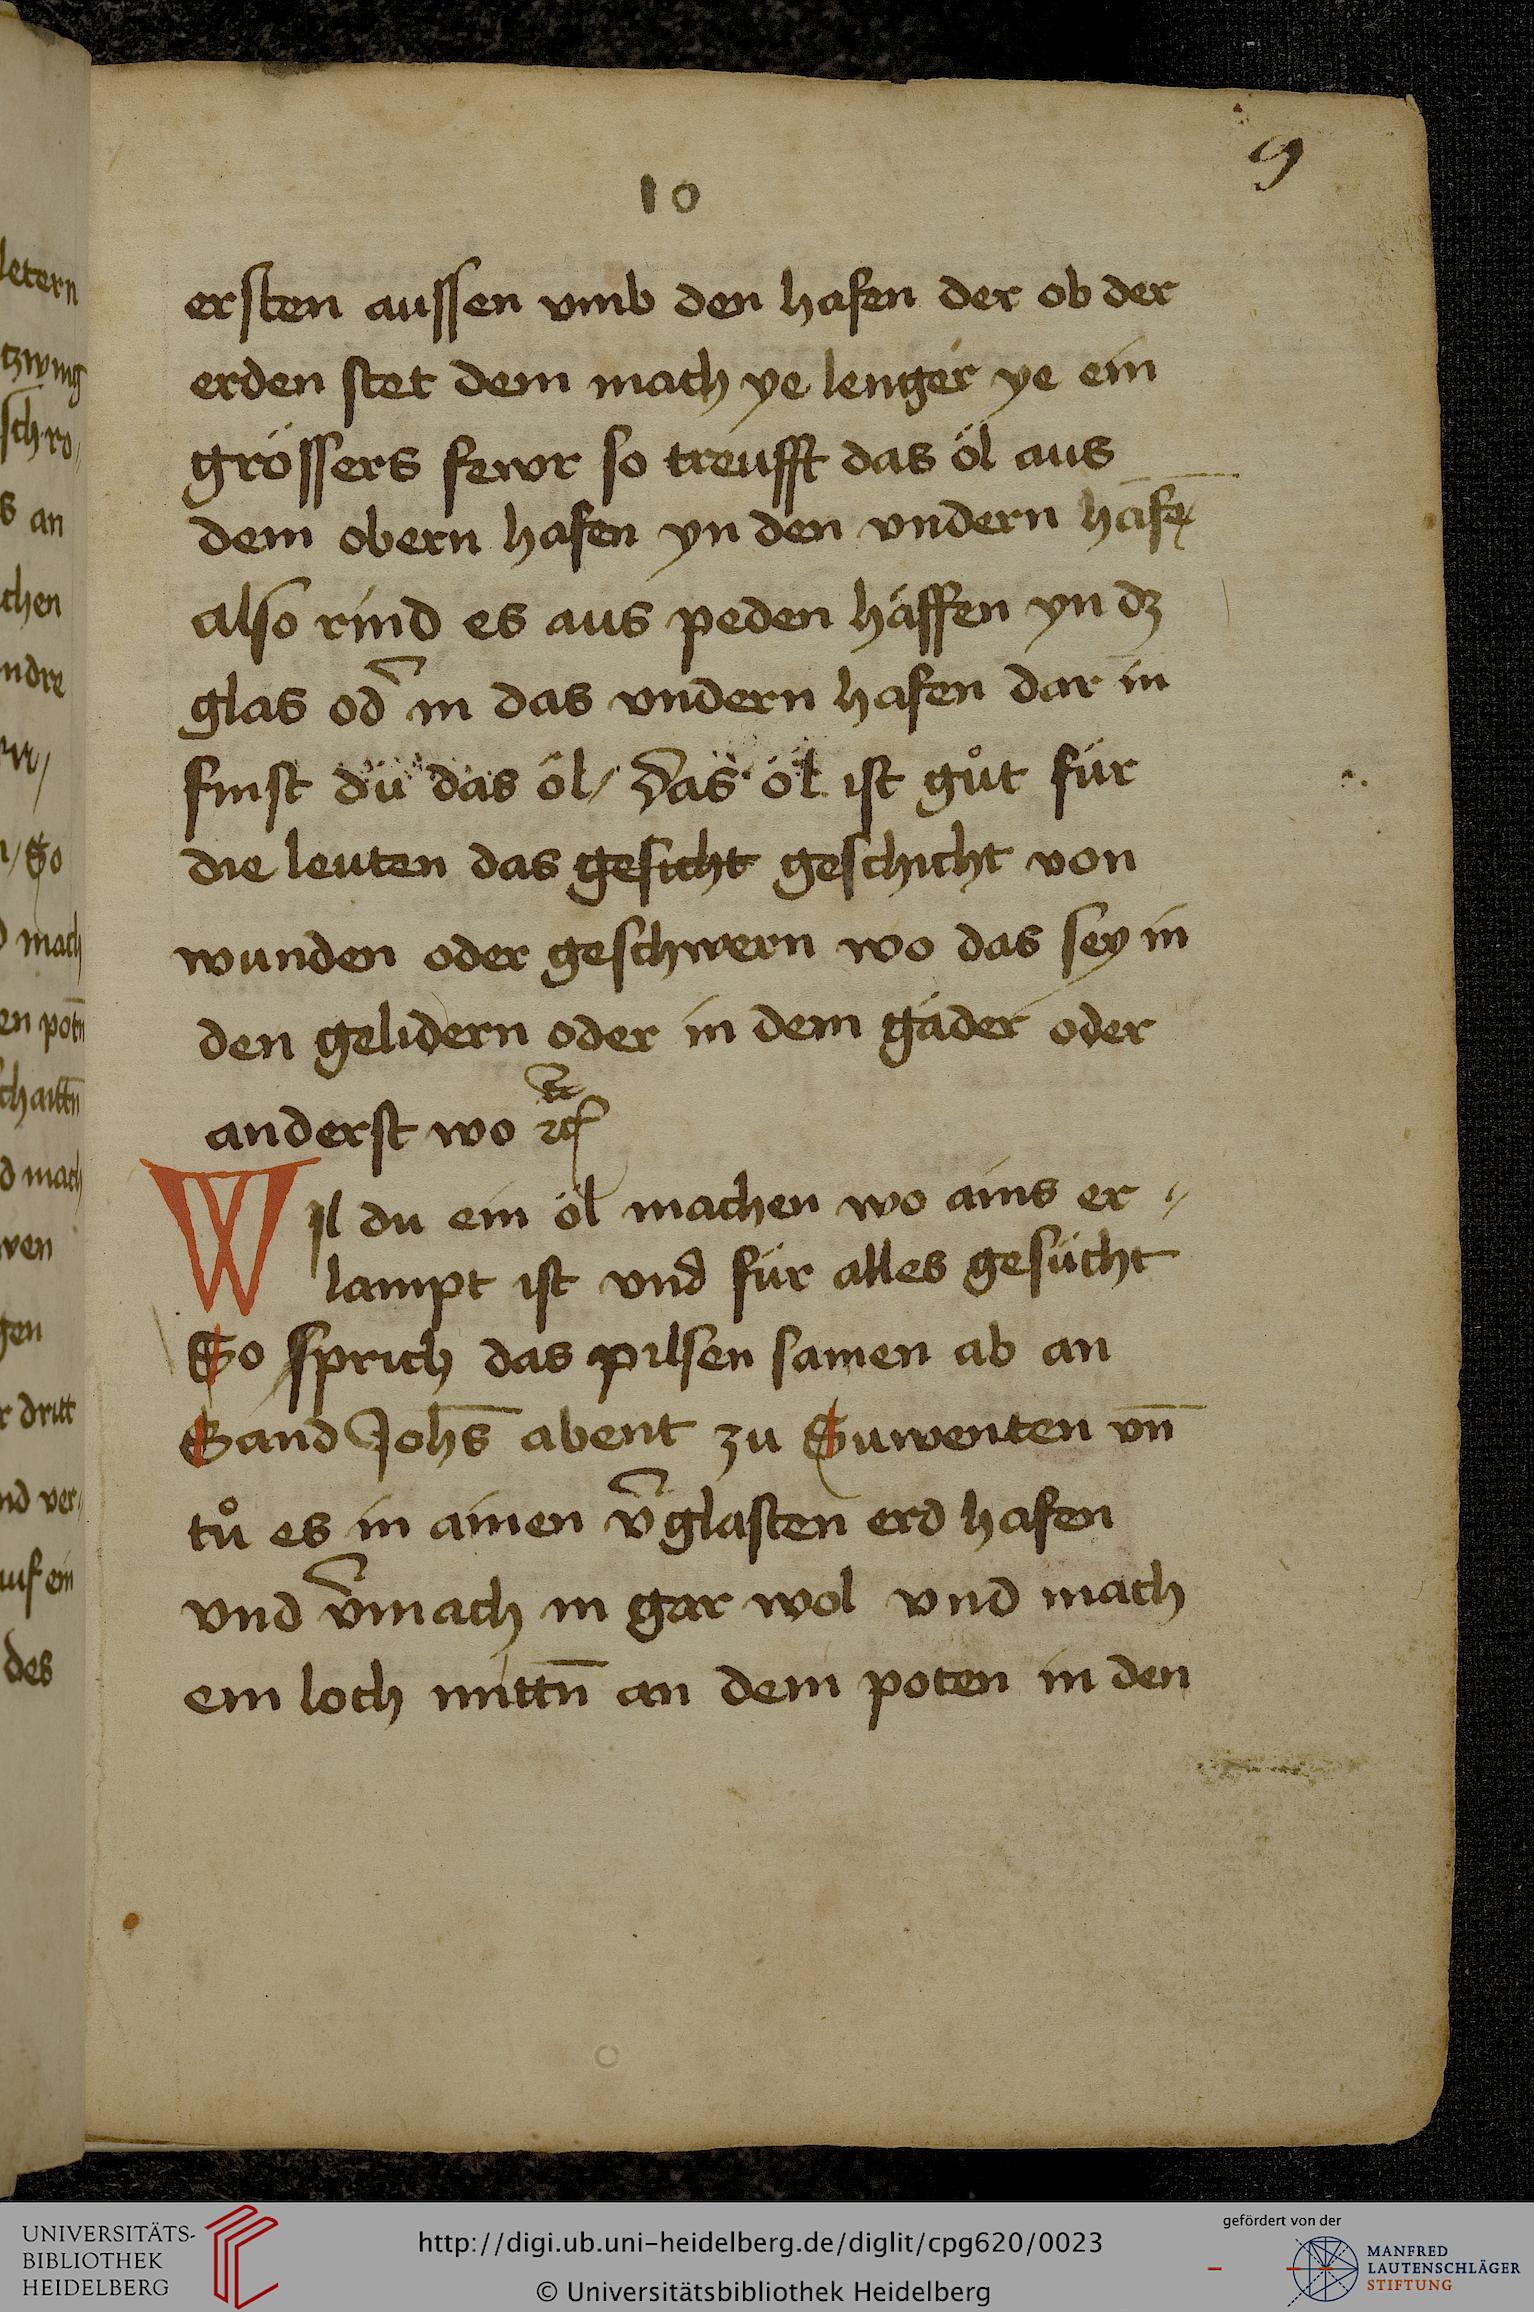 9
10
ersten aussen vmb den hafen der ob der
erden stet dem mach ye lenger ye ein
grössers fewr so treufft das öl aus
dem obern hafen yn den vndern hafē
also rind es aus peden häffen yn dz
glas od̾ in das vndern hafen dar in
finst du das öl / Das öl ist gůt für
die leuten das gesicht geschicht von
wunden oder geschwern wo das sey in
den gelidern oder in dem gäder oder
anderst wo
Wil du ein öl machen wo ains er〃
lampt ist vnd für alles gesücht
So sprich das pilsen samen ab an
Sand Joh̄s abent zu Suwenten vn̄
tů es in ainen v̾glasten erd hafen
vnd v̾mach in gar wol vnd mach
ein loch mittn̄ an dem poten in den
letern
tzwing
schro
s an
chen
ndre
/ So
mach
en potn̄
chaittn̄
d mach
wen
gen
r dritt
nd ver
auf ein
des
UNIVERSITÄTS-
BIBLIOTHEK
HEIDELBERG
http://digi.ub.uni-heidelberg.de/diglit/cpg620/0023
© Universitätsbibliothek Heidelberg
gefördert von der
MANFRED
LAUTENSCHLÄGER
STIFTUNG